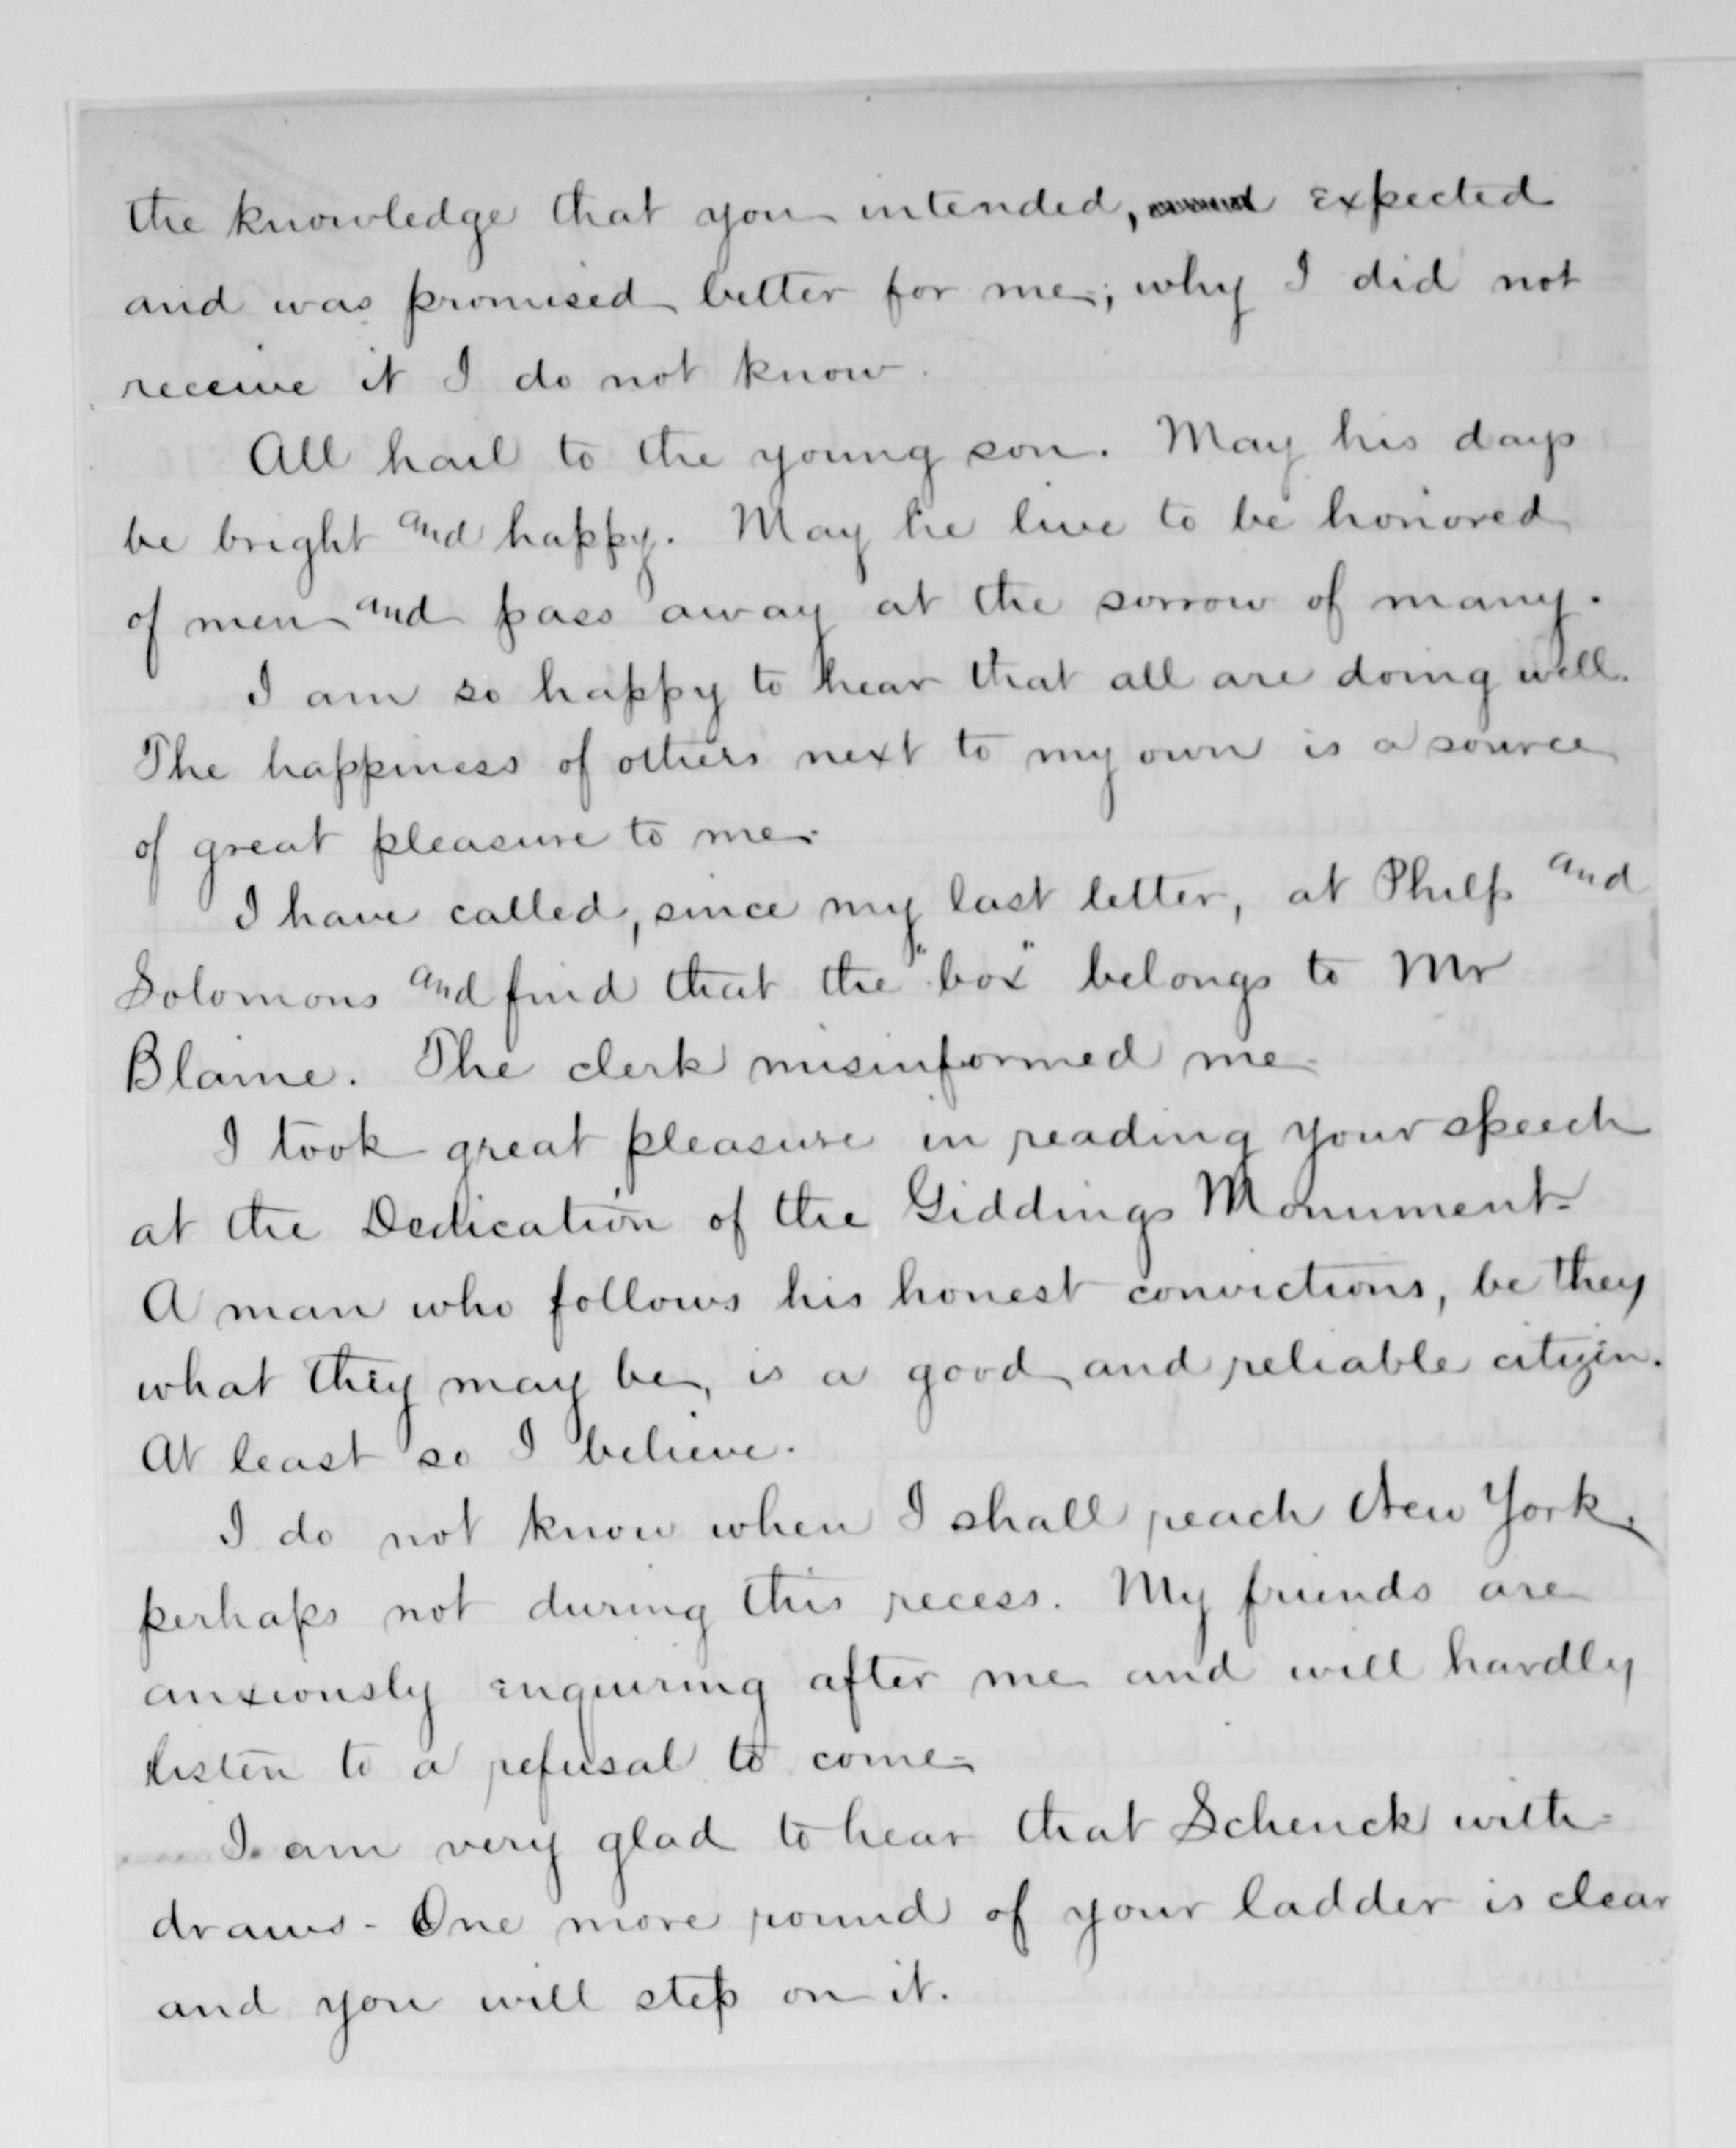 the knowledge that you intended, expected
and was promised better for me; why I did not
receive it I do not know.
All hail to the young son. May his days
be bright and happy. May he live to be honored
of men and pass away at the sorrow of many.
I am so happy to hear that all are doing well.
The happiness of others next to my own is a source
of great pleasure to me.
I have called, since my last letter, at Philp and
Solomons and find that the "box" belongs to Mr
Blaine. The clerk misinformed me.
I took great pleasure in reading your speech
at the Dedication of the Giddings Monument-
A man who follows his honest convictions, be they
what they may be, is a good and reliable citizen.
At least so I believe.
I do not know when I shall reach New York,
perhaps not during this recess. My friends are
anxiously enquiring after me and will hardly
listen to a refusal to come-
I am very glad to hear that Schenck with-
draws- One more round of your ladder is clear
and you will step on it.